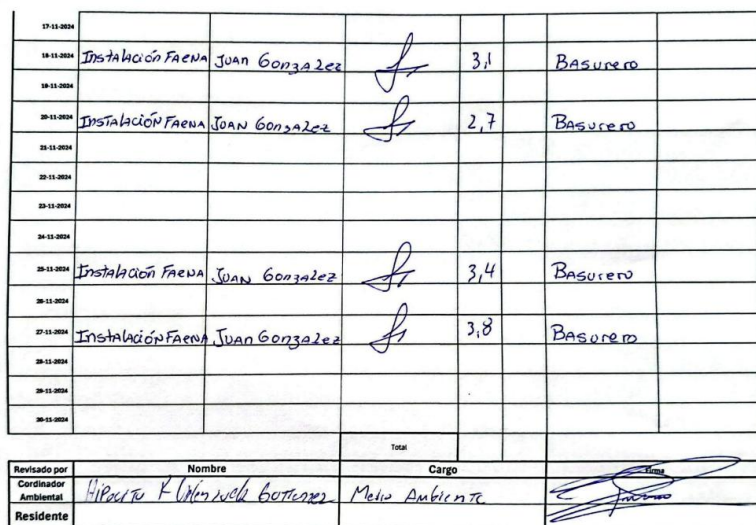 17-11-2024
18-11-2024 Instalación Faena Juan Gonzalez 3,1 Basurero
19-11-2024
20-11-2024 Instalación Faena Juan Gonzalez 2,7 Basurero
21-11-2024
22-11-2024
23-11-2024
24-11-2024
25-11-2024 Instalación Faena Juan Gonzalez 3,4 Basurero
26-11-2024
27-11-2024 Instalación Faena Juan Gonzalez 3,8 Basurero
28-11-2024
29-11-2024
30-11-2024
Total
Revisado por Nombre Cargo Firma
Cordinador
Ambiental Medio Ambiente
Residente